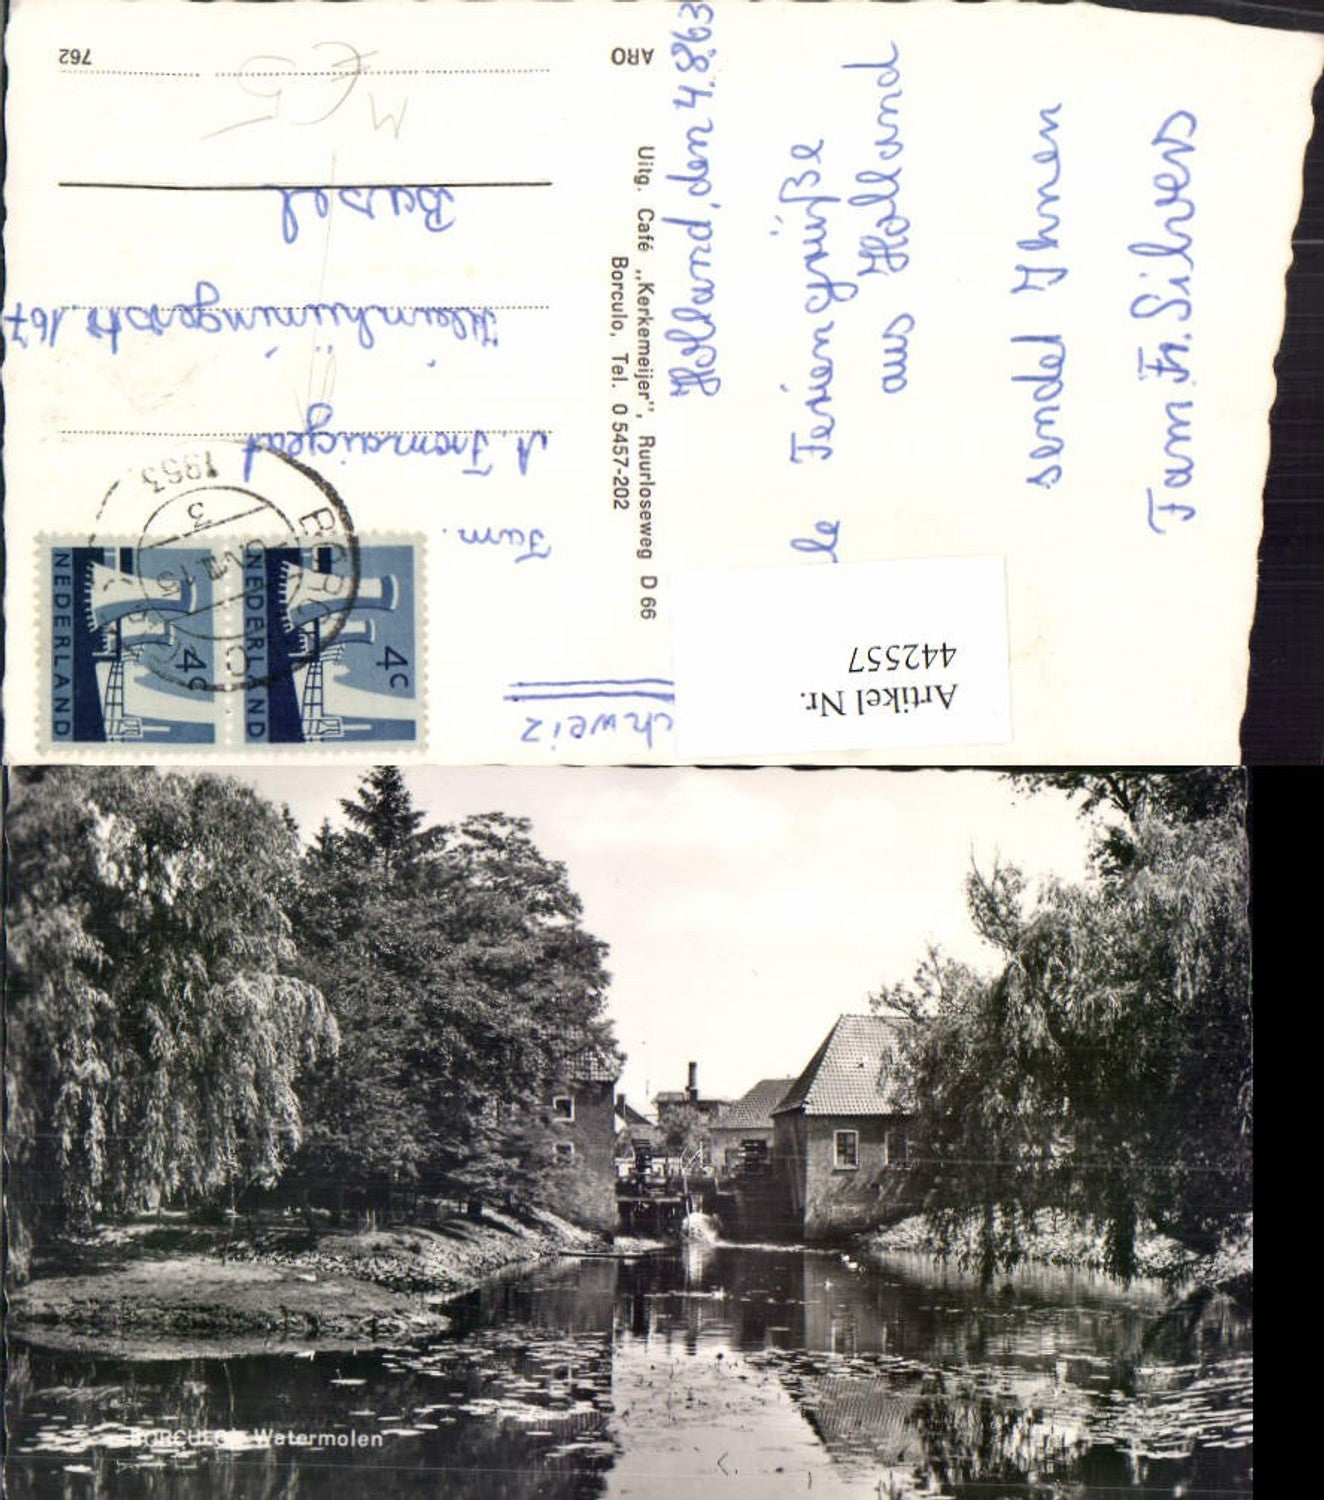 Holland, den 4.8.63
le Feriengrüße
aus Holland
sendet Ihnen
Fam. Fr. Silvers
ARO
Uitg. Café „Kerkemeijer”, Ruurloseweg D 66
Borculo, Tel. 0 5457-202
Fam.
Kleinhüningerstr. 167
Basel
762
chweiz
M €5
NEDERLAND 4c
NEDERLAND 4c
1963
Artikel Nr.
442557
BORCULO - Watermolen